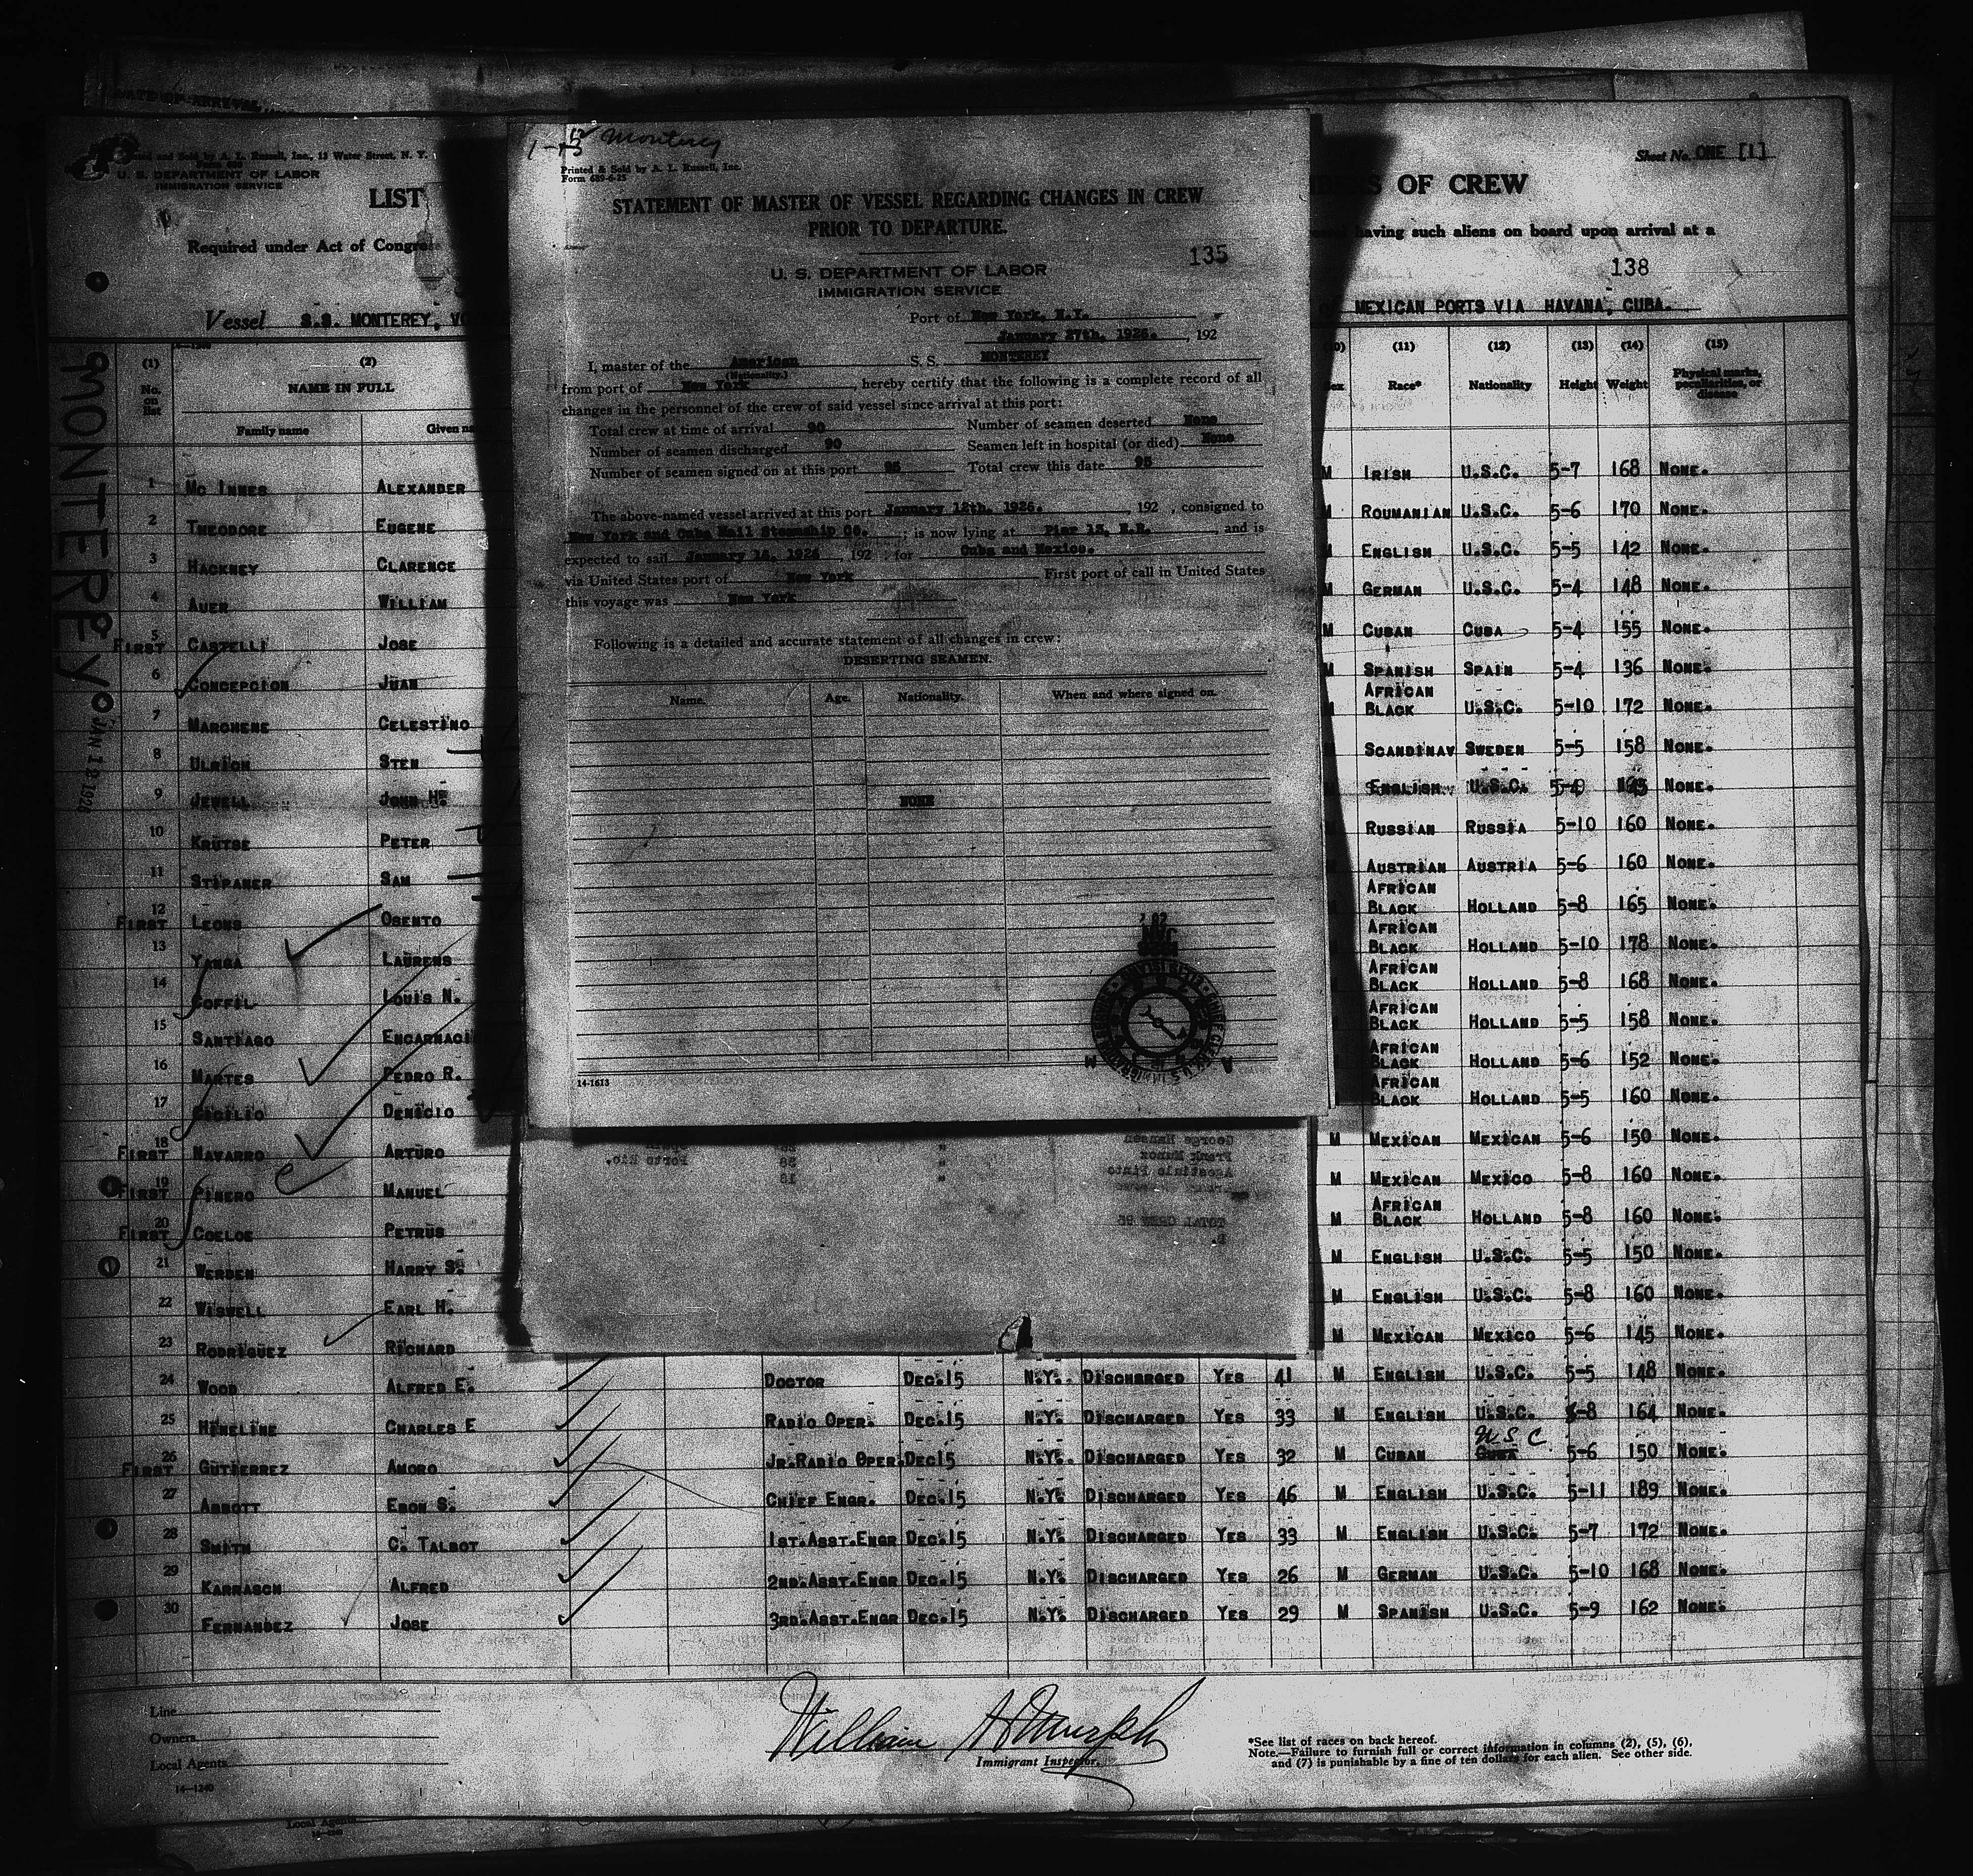 1-12 Monterey
Printed & Sold by A. L. Russell, Inc.
Form 689-6-25
STATEMENT OF MASTER OF VESSEL REGARDING CHANGES IN CREW
PRIOR TO DEPARTURE.
135
U. S. DEPARTMENT OF LABOR
IMMIGRATION SERVICE
Port of New York, N.Y.
January 27th, 1926. , 192
I, master of the American S. S. MONTEREY
(Nationality.)
from port of New York , hereby certify that the following is a complete record of all
changes in the personnel of the crew of said vessel since arrival at this port:
Total crew at time of arrival 90 Number of seamen deserted None
Number of seamen discharged 90 Seamen left in hospital (or died) None
Number of seamen signed on at this port 95 Total crew this date 95
The above-named vessel arrived at this port January 12th, 1926. , 192 , consigned to
New York and Cuba Mail Steamship Co. ; is now lying at Pier 13, E.R. and is
expected to sail January 16, 1926 , 192 ; for Cuba and Mexico.
via United States port of New York First port of call in United States
this voyage was New York
Following is a detailed and accurate statement of all changes in crew:
DESERTING SEAMEN.
Name. Age. Nationality. When and where signed on.
NONE
14-1613
George Hansen
Frank Munoz
Agostinio Pinto
Porto Rio.
TOTAL CREW 95
DATE OF ARRIVAL
Printed and Sold by A. L. Russell, Inc., 13 Water Street, N. Y.
U. S. DEPARTMENT OF LABOR
IMMIGRATION SERVICE
Sheet No. ONE [1]
LIST OF CREW
Required under Act of Congress having such aliens on board upon arrival at a
138
Vessel S.S. MONTEREY, MEXICAN PORTS VIA HAVANA, CUBA.
MONTEREY
JAN 12 1926
(1) (2) (11) (12) (13) (14) (15)
No. on list NAME IN FULL Race* Nationality Height Weight Physical marks, peculiarities, or disease
Family name Given na
1 Mc INNES ALEXANDER M IRISH U.S.C. 5-7 168 NONE.
2 THEODORE EUGENE ROUMANIAN U.S.C. 5-6 170 NONE.
3 HACKNEY CLARENCE ENGLISH U.S.C. 5-5 142 NONE.
4 AUER WILLIAM M GERMAN U.S.C. 5-4 148 NONE.
5 FIRST CASTELLI JOSE M CUBAN CUBA 5-4 155 NONE.
6 CONCEPCION JUAN M SPANISH SPAIN 5-4 136 NONE.
7 MARCHENE CELESTINO AFRICAN BLACK U.S.C. 5-10 172 NONE.
8 ULRICH STEN SCANDINAV SWEDEN 5-5 158 NONE.
9 JEWELL JOHN H. ENGLISH U.S.C. NONE.
10 KRUTSE PETER RUSSIAN RUSSIA 5-10 160 NONE.
11 STIPANER SAM AUSTRIAN AUSTRIA 5-6 160 NONE.
12 FIRST LEONS OBENTO AFRICAN BLACK HOLLAND 5-8 165 NONE.
13 YANGA LAURENS AFRICAN BLACK HOLLAND 5-10 178 NONE.
14 COFFIL LOUIS N. AFRICAN BLACK HOLLAND 5-8 168 NONE.
15 SANTIAGO ENCARNACI AFRICAN BLACK HOLLAND 5-5 158 NONE.
16 MARTES PEDRO R. AFRICAN BLACK HOLLAND 5-6 152 NONE.
17 CICILIO DENICIO AFRICAN BLACK HOLLAND 5-5 160 NONE.
18 FIRST NAVARRO ARTURO M MEXICAN MEXICAN 5-6 150 NONE.
19 FIRST PINERO MANUEL M MEXICAN MEXICO 5-8 160 NONE.
20 FIRST COELOE PETRUS M AFRICAN BLACK HOLLAND 5-8 160 NONE.
21 WERDEN HARRY S. M ENGLISH U.S.C. 5-5 150 NONE.
22 WISWELL EARL H. M ENGLISH U.S.C. 5-8 160 NONE.
23 RODRIGUEZ RICHARD M MEXICAN MEXICO 5-6 145 NONE.
24 WOOD ALFRED E. DOCTOR DEC.15 N.Y. DISCHARGED YES 41 M ENGLISH U.S.C. 5-5 148 NONE.
25 HENELINE CHARLES E RADIO OPER. DEC.15 N.Y. DISCHARGED YES 33 M ENGLISH U.S.C. 5-8 164 NONE.
26 FIRST GUTIERREZ AMORO JR.RADIO OPER. DEC15 N.Y. DISCHARGED YES 32 M CUBAN CUBA U S C 5-6 150 NONE.
27 ABBOTT EBON S. CHIEF ENGR. DEC.15 N.Y. DISCHARGED YES 46 M ENGLISH U.S.C. 5-11 189 NONE.
28 SMITH C. TALBOT 1ST.ASST.ENGR DEC.15 N.Y. DISCHARGED YES 33 M ENGLISH U.S.C. 5-7 172 NONE.
29 KARRASCH ALFRED 2ND.ASST.ENGR DEC.15 N.Y. DISCHARGED YES 26 M GERMAN U.S.C. 5-10 168 NONE.
30 FERNANDEZ JOSE 3RD.ASST.ENGR DEC.15 N.Y. DISCHARGED YES 29 M SPANISH U.S.C. 5-9 162 NONE.
Line
Owners
Local Agents
14-1240
William A Murphy
Immigrant Inspector.
*See list of races on back hereof.
Note.—Failure to furnish full or correct information in columns (2), (5), (6),
and (7) is punishable by a fine of ten dollars for each alien. See other side.
Local Agents